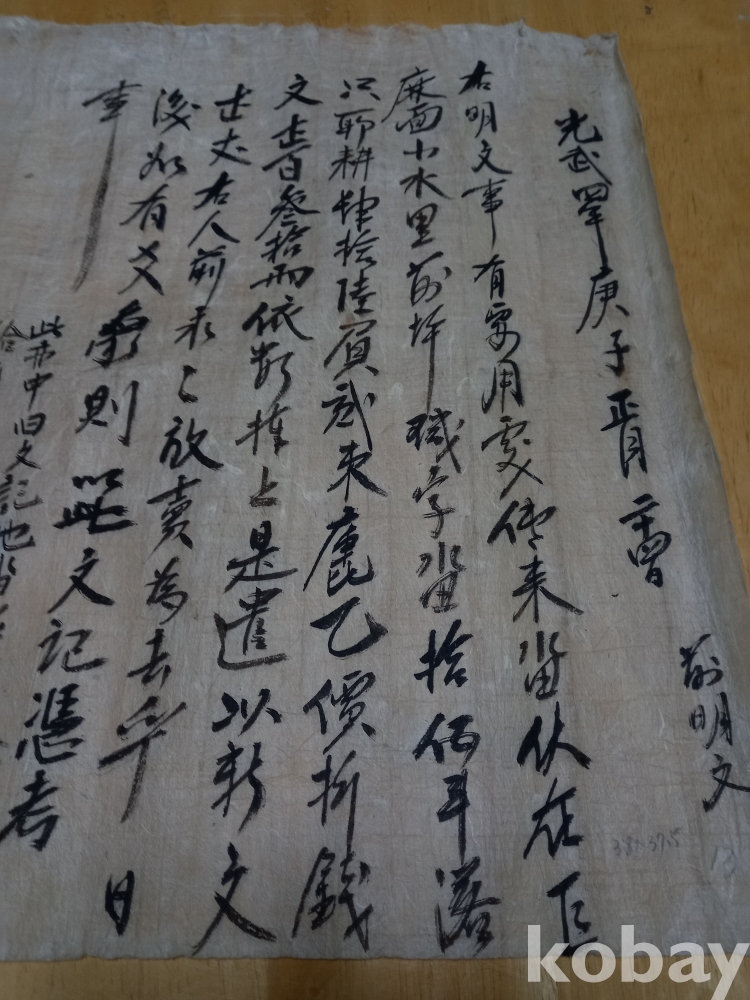 光武四年庚子正月二十四日 前明文
右明文事有要用處傳來畓伏在巨
麻面小水里前坪職字畓拾伍斗落
只耶耕肆拾陸負貳束廤乙價折錢
文壹百叄拾兩依數捧上是遣以新文
壹丈右人前永〻放賣為去乎日
後如有爻象則以此文記憑考
事
中旧文記也
kobay